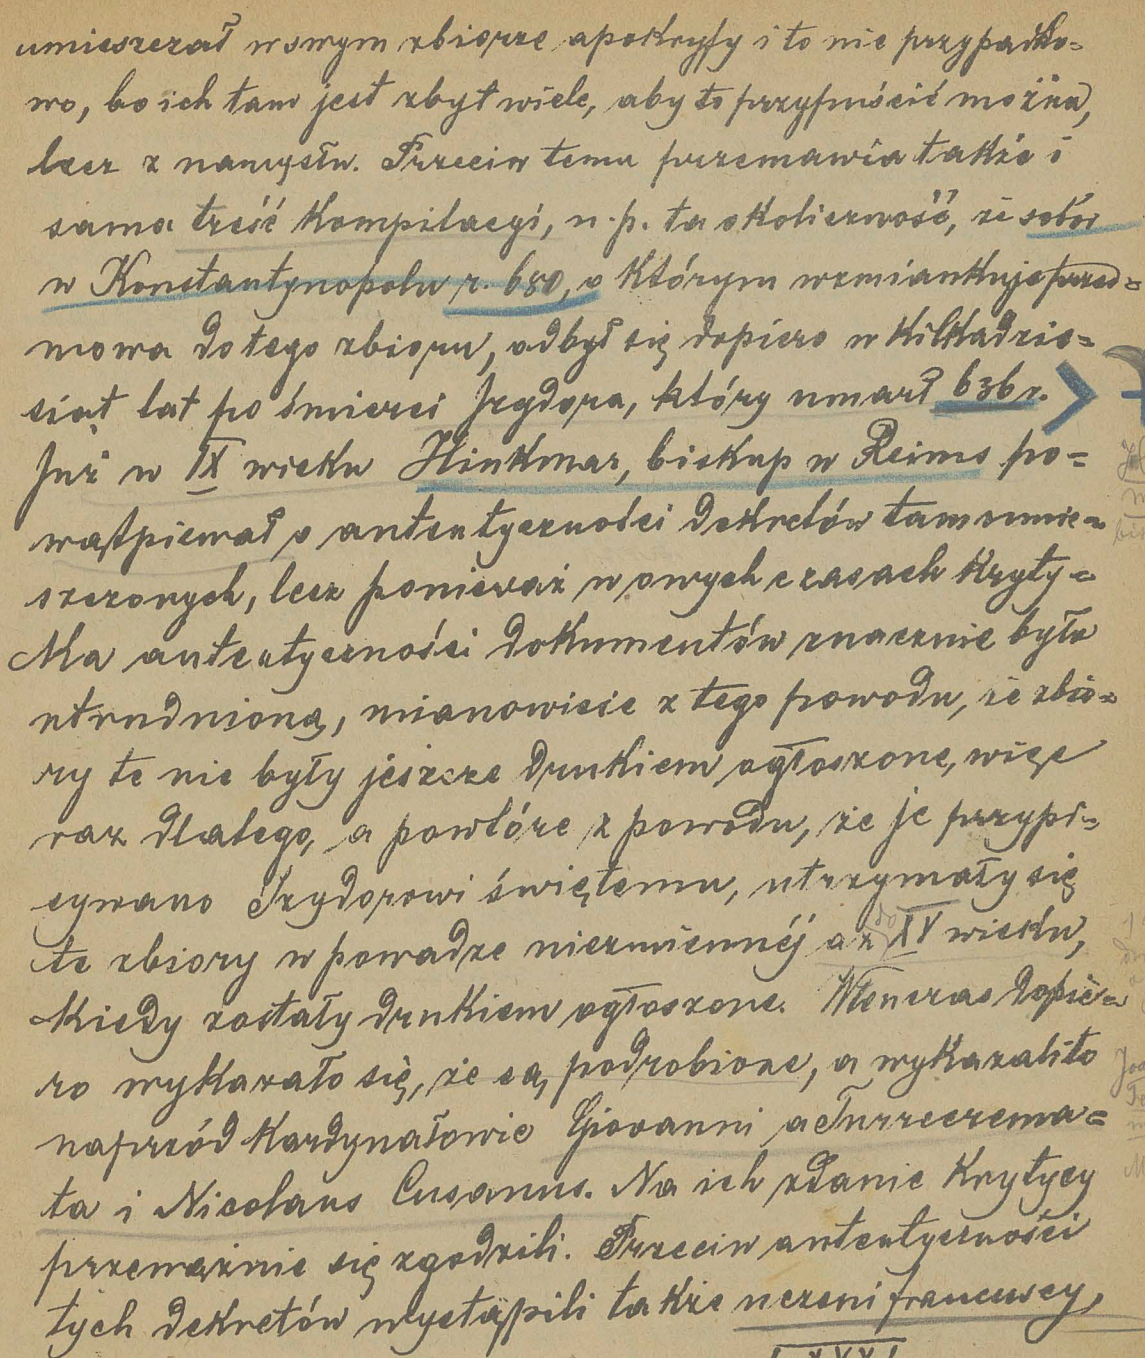 umieszczał w swym zbiorze apokryfy i to nie przypadko=
wo, bo ich tam jest zbyt wiele, aby to przypuścić można,
lecz z namysłu. Przeciw temu przemawia także i
sama treść kompilacyi, n. p. ta okoliczność, że sobór
w Konstantynopolu r. 680, o którym wzmiankuje przed=
mowa do tego zbioru, odbył się dopiero w kilkadzie=
siąt lat po śmierci Izydora, który umarł 636 r.
Już w IX wieku Hinkmar, biskup w Reims po=
wątpiewał o autentyczności dekretów tam umie=
szczonych, lecz ponieważ w owych czasach kryty=
ka autentyczności dokumentów znacznie była
utrudnioną, mianowicie z tego powodu, że zbio=
ry te nie były jeszcze drukiem ogłoszone, więc
raz dlatego, a powtóre z powodu, że je przypi=
sywano Izydorowi świętemu, utrzymały się
te zbiory w powadze niezmiennéj aż do XV wieku,
kiedy zostały drukiem ogłoszone. Wtenczas dopie=
ro wykazało się, że są podrobione, a wykazali to
naprzód kardynałowie Giovanni a Turrecrema=
ta i Nicolaus Cusanus. Na ich zdanie krytycy
przeważnie się zgodzili. Przeciw autentyczności
tych dekretów wystąpili także uczeni francuscy,